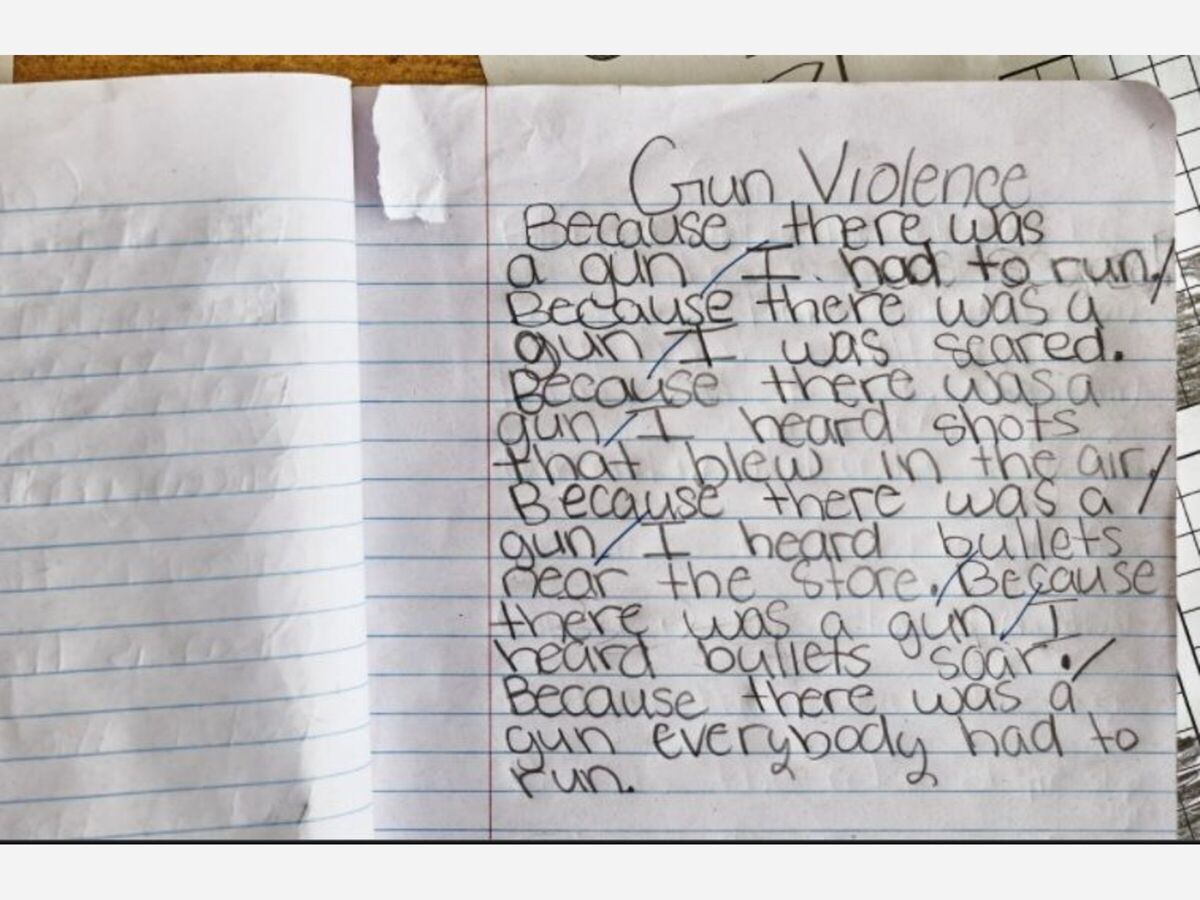 Gun Violence
Because there was
a gun I had to run.
Because there was a
gun I was scared.
Because there was a
gun I heard shots
that blew in the air.
Because there was a
gun I heard bullets
near the store. Because
there was a gun I
heard bullets soar.
Because there was a
gun everybody had to
run.